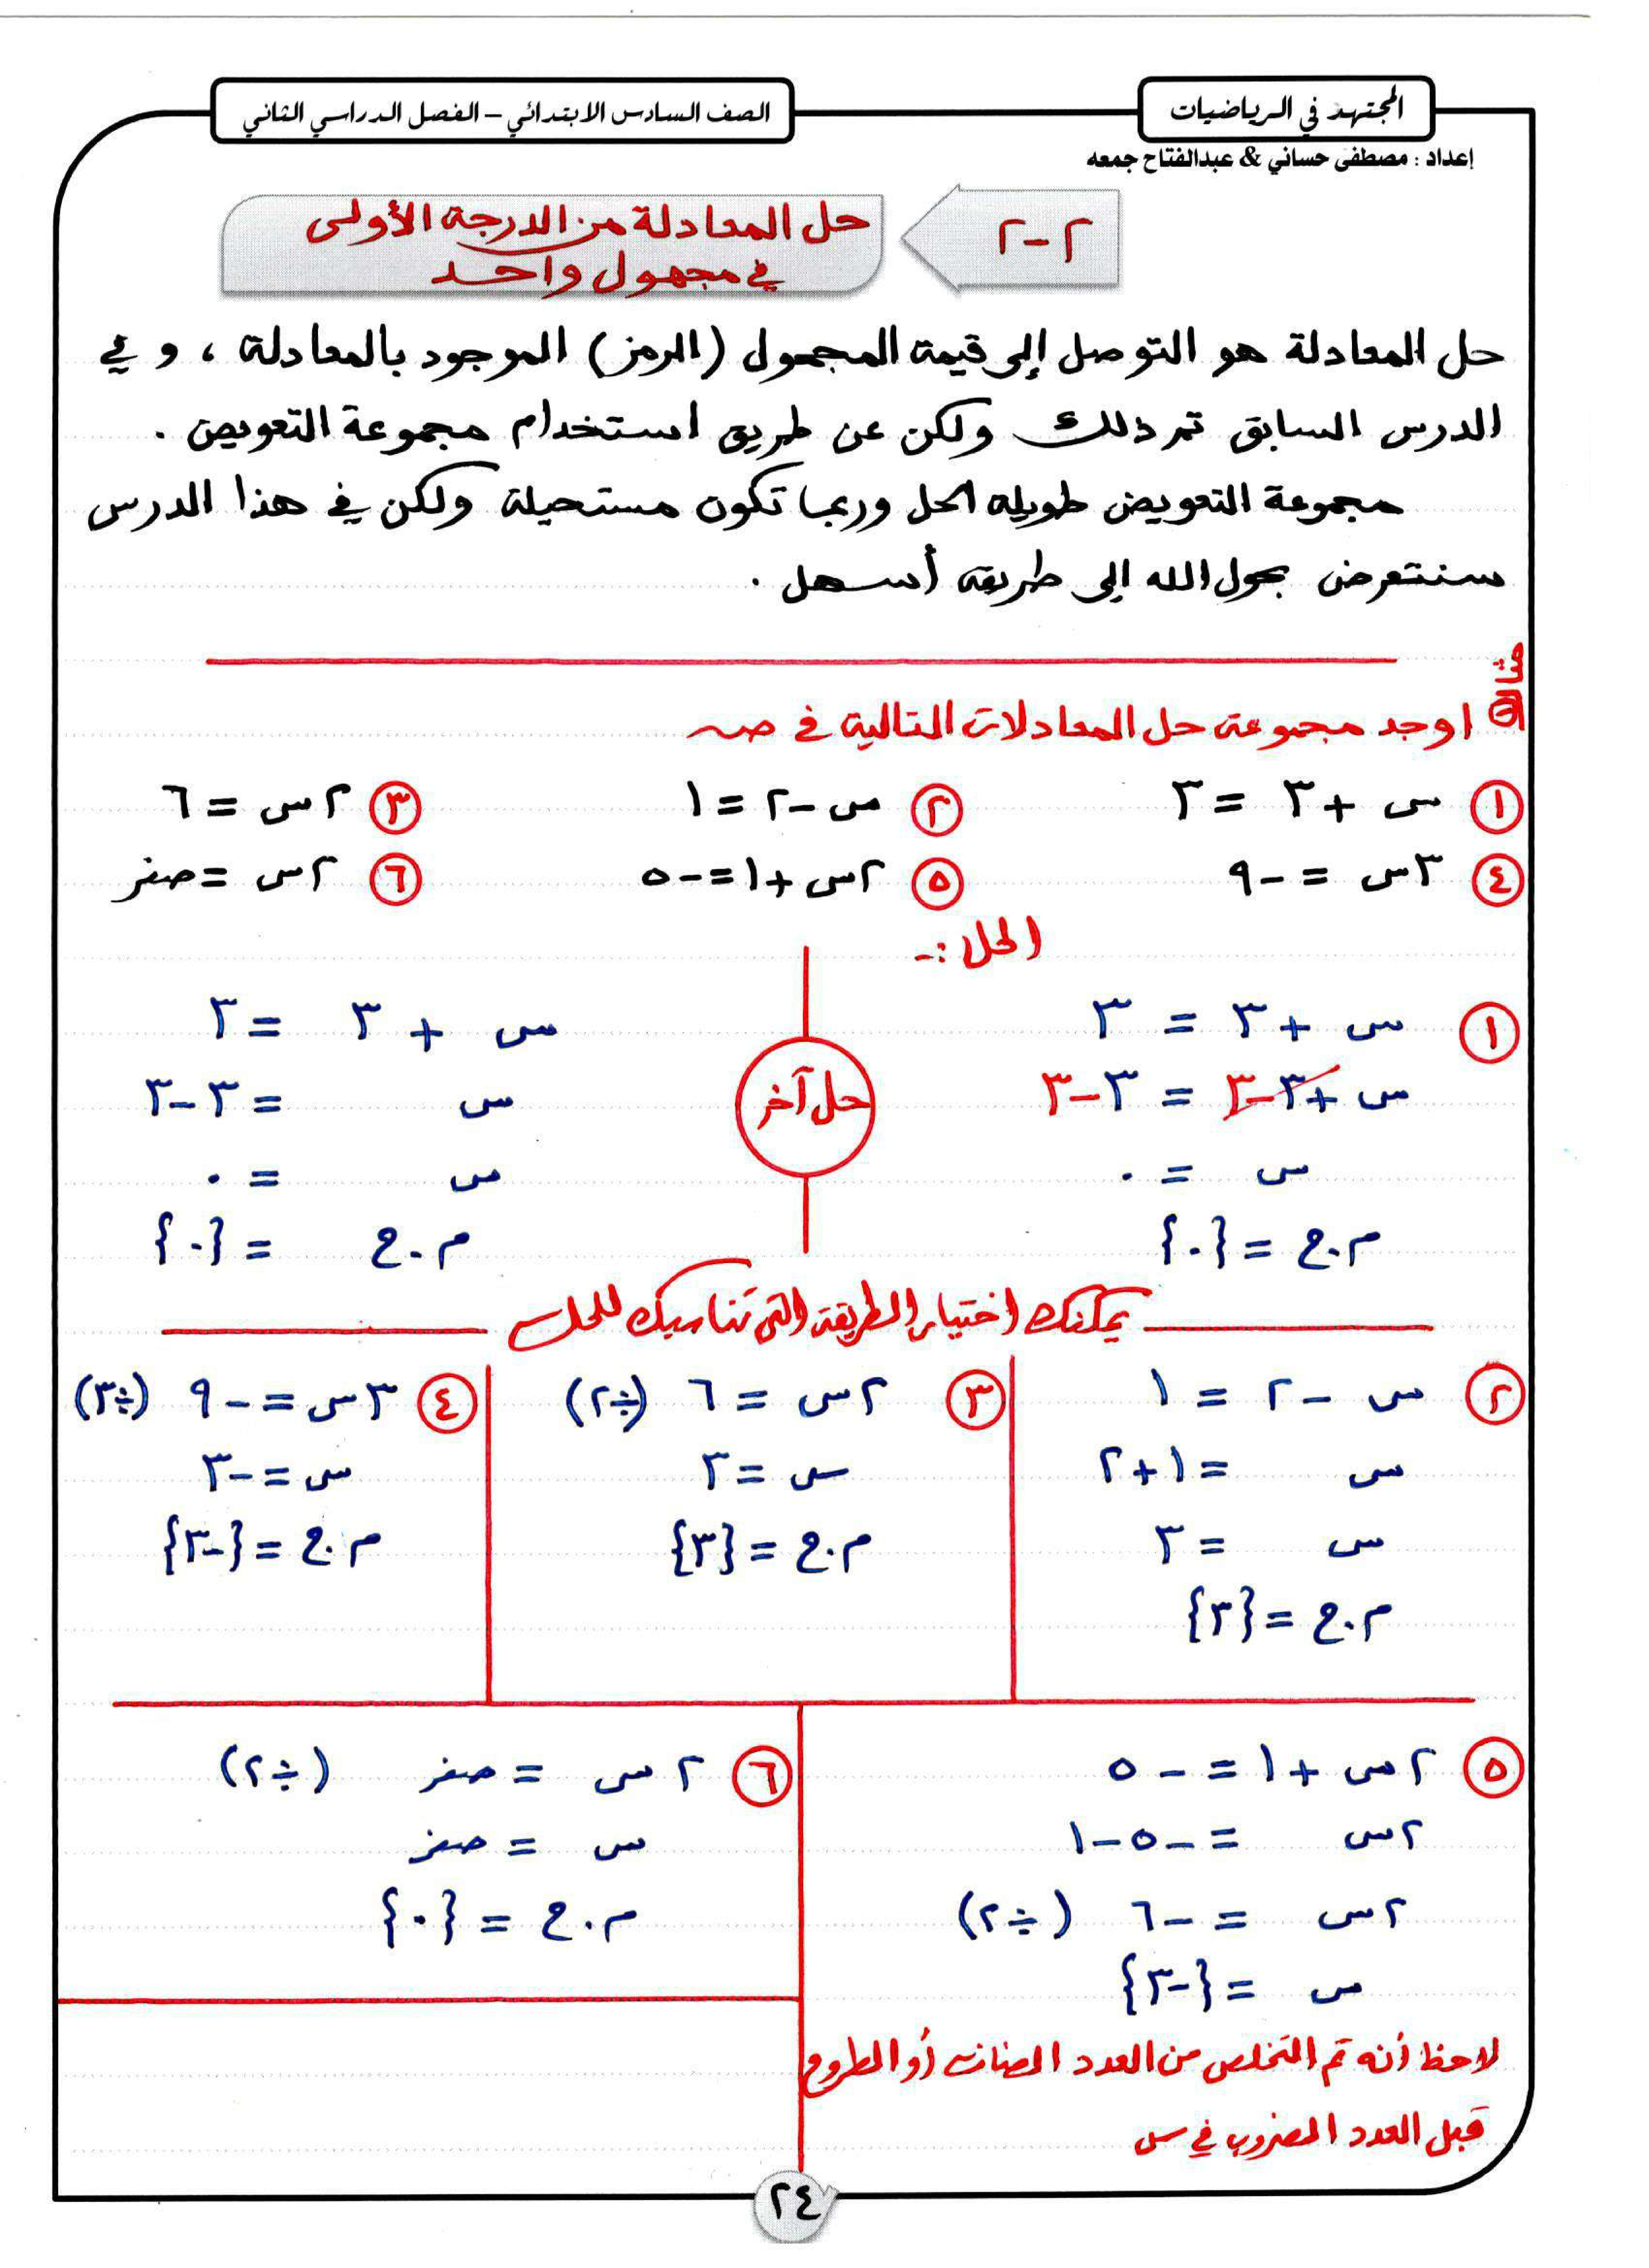 المجتهد في الرياضيات
الصف السادس الابتدائي – الفصل الدراسي الثاني
إعداد : مصطفى حساني & عبدالفتاح جمعه
٢-٢
حل المعادلة من الدرجة الأولى
في مجهول واحد
حل المعادلة هو التوصل إلى قيمة المجهول (الرمز) الموجود بالمعادلة ، و في
الدرس السابق تم ذلك ولكن عن طريق استخدام مجموعة التعويض .
مجموعة التعويض طويلة الحل وربما تكون مستحيلة ولكن في هذا الدرس
سنتعرض بحول الله إلى طريقة أسهل .
مثال
اوجد مجموعة حل المعادلات التالية في صـ
١ س + ٣ = ٣ ٢ س - ٢ = ١ ٣ ٢س = ٦
٤ ٣س = -٩ ٥ ٢س + ١ = -٥ ٦ ٢س = صفر
الحل :-
١ س + ٣ = ٣
س + ٣ - ٣ = ٣ - ٣
س = ٠
م.ح = {٠}
حل آخر
س + ٣ = ٣
س = ٣ - ٣
س = ٠
م.ح = {٠}
يمكنك اختيار الطريقة التي تناسبك للحل
٢ س - ٢ = ١
س = ١ + ٢
س = ٣
م.ح = {٣}
٣ ٢س = ٦ (÷٢)
س = ٣
م.ح = {٣}
٤ ٣س = -٩ (÷٣)
س = -٣
م.ح = {-٣}
٥ ٢س + ١ = -٥
٢س = -٥-١
٢س = -٦ (÷٢)
س = {-٣}
لاحظ أنه تم التخلص من العدد المضاف أو المطروح
قبل العدد المضروب في س
٦ ٢س = صفر (÷٢)
س = صفر
م.ح = {٠}
٢٤